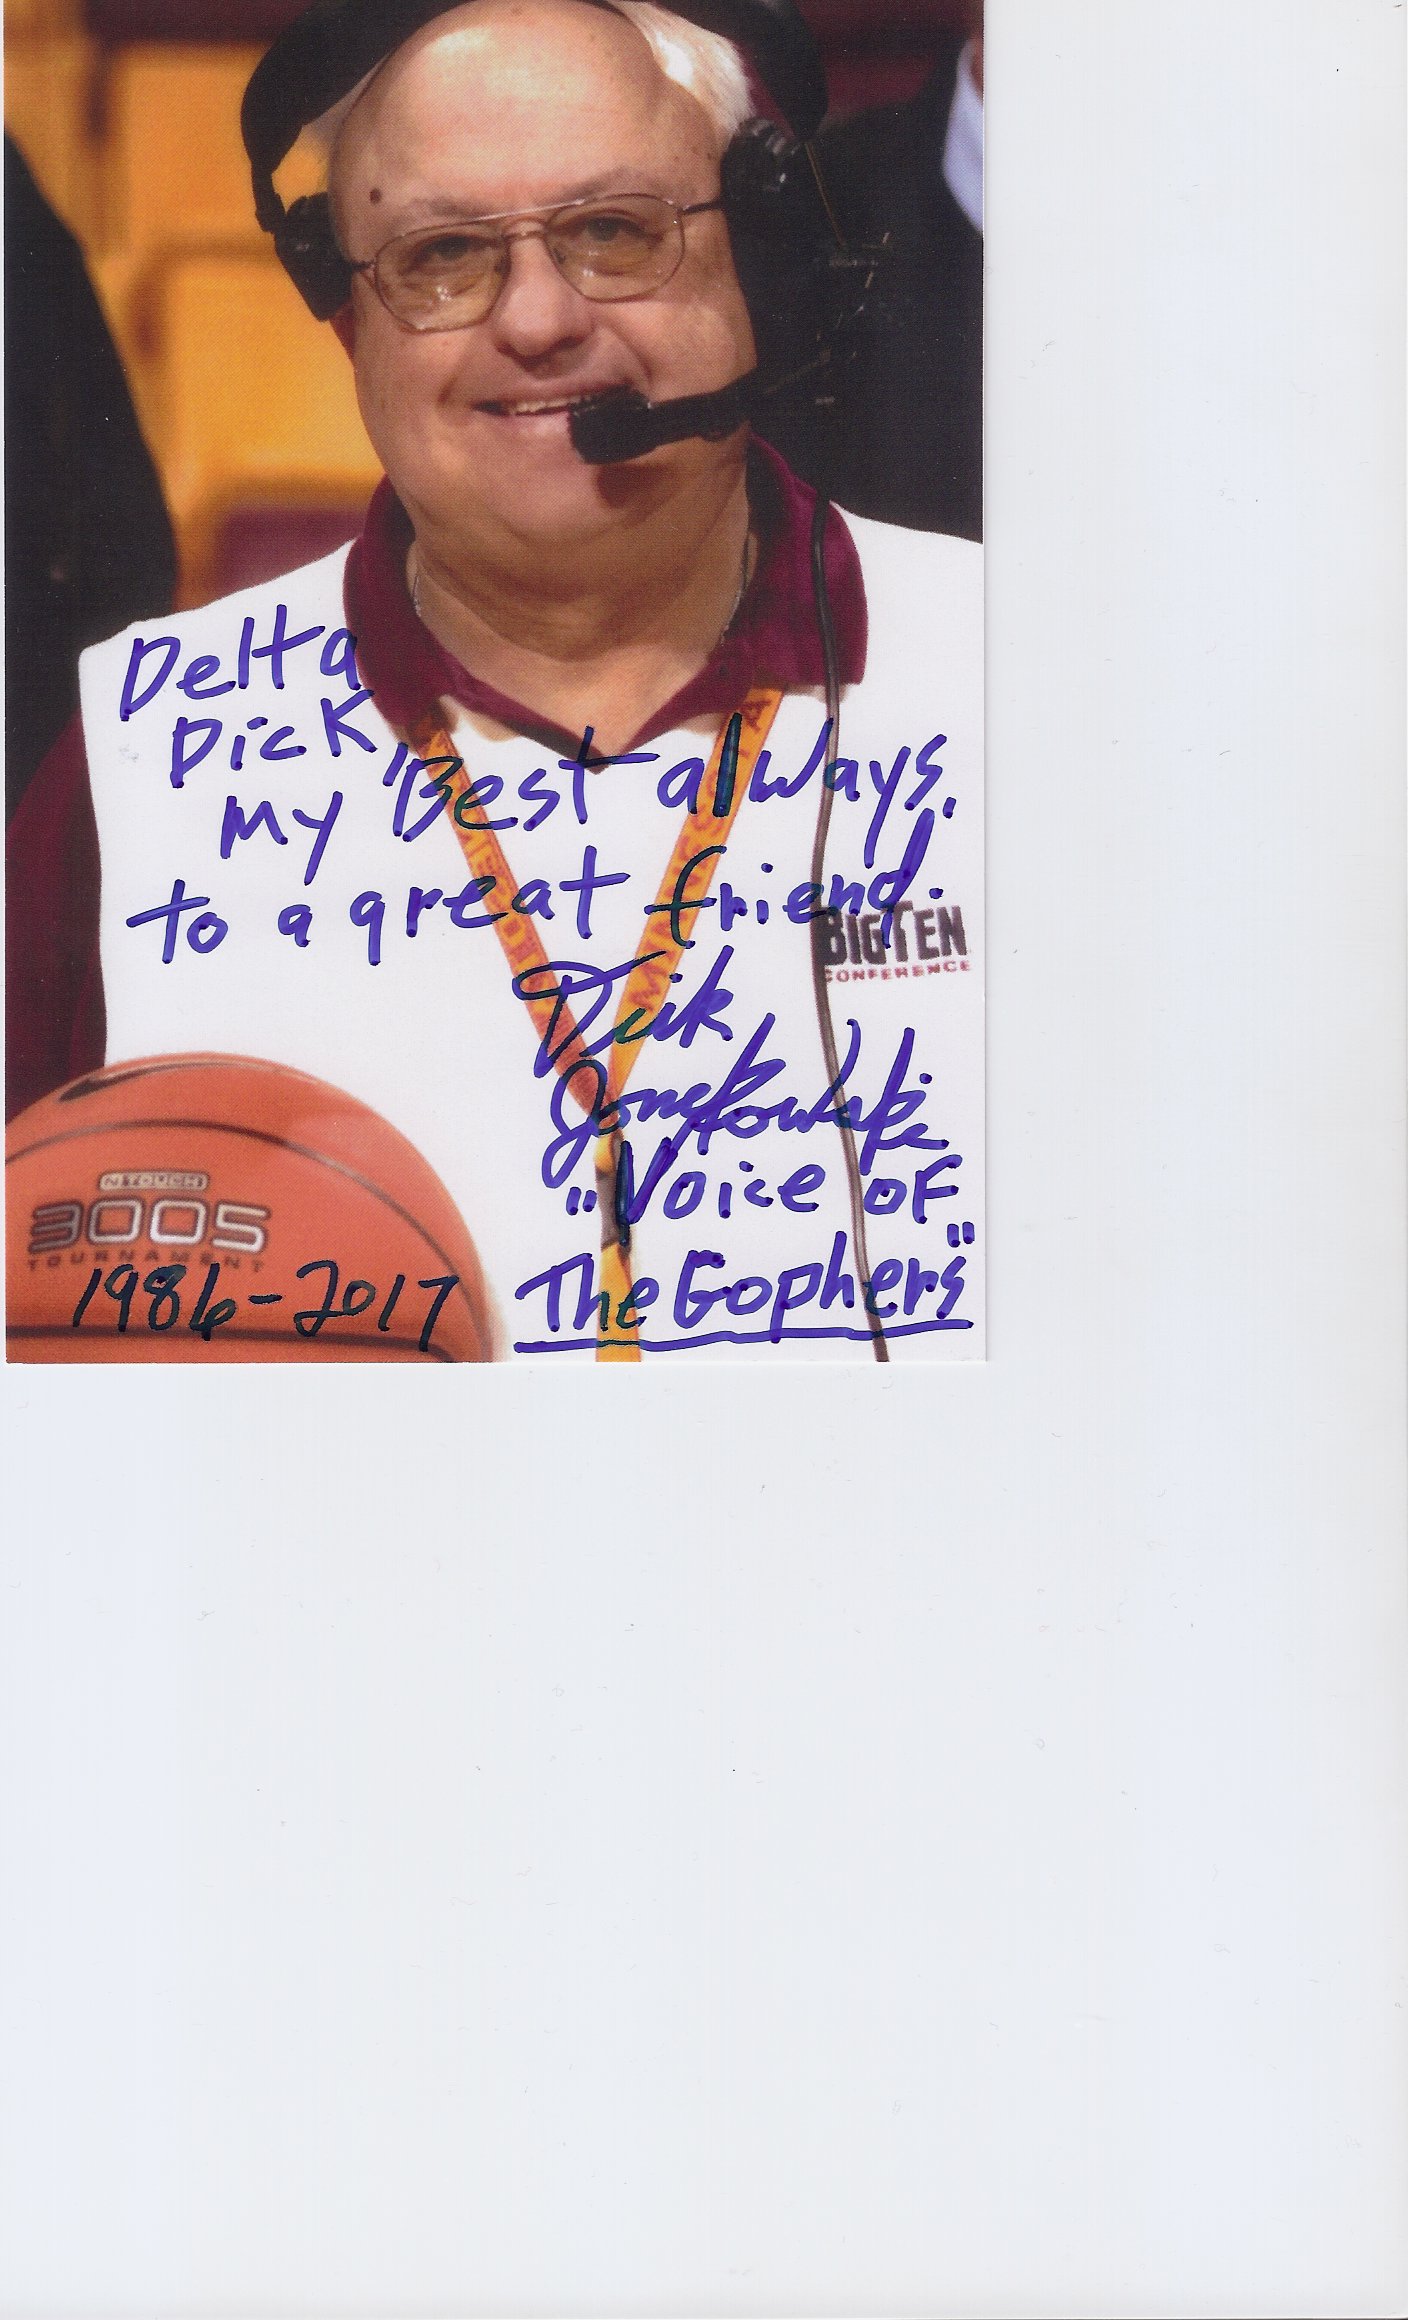 Delta
Dick,
My Best always,
to a great friend.
BIG TEN
CONFERENCE
Dick
Jonckowski
"Voice of
The Gophers"
NTOUCH
3005
TOURNAMENT
1986-2017